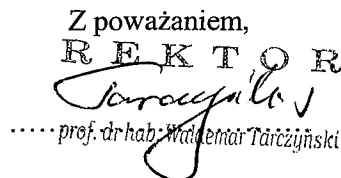 Z poważaniem,
R E K T O R
prof. dr hab. Waldemar Tarczyński